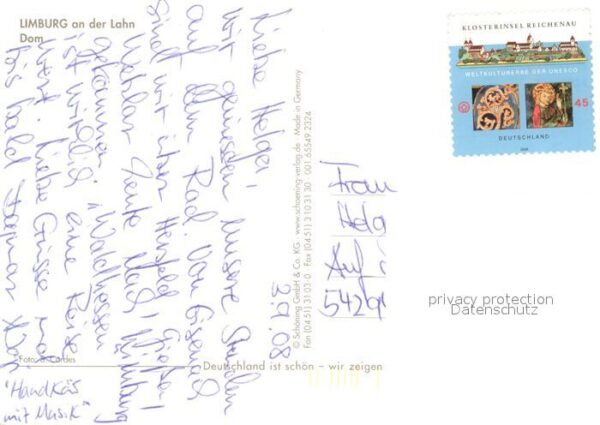 LIMBURG an der Lahn
Dom
KLOSTERINSEL REICHENAU
WELTKULTURERBE DER UNESCO
45
DEUTSCHLAND
3.9.08
Liebe Helga,
wir genießen unsere Stunden
auf dem Rad. Von Eisenach
sind wir über Hersfeld, Gießen,
Wetzlar heute nach Limburg
gekommen. Waldhessen
ist wirklich eine Reise
wert. Liebe Grüße und
bis bald Dagmar
"Handkäs
mit Musik"
© Schöning GmbH & Co. KG · www.schoening-verlag.de · Made in Germany
Fon (04 51) 3 10 3-0 · Fax (04 51) 3 10 31 30 001 65549 2324
Frau
Helg
Auf
5429
privacy protection
Datenschutz
Foto: Cordes
Deutschland ist schön – wir zeigen